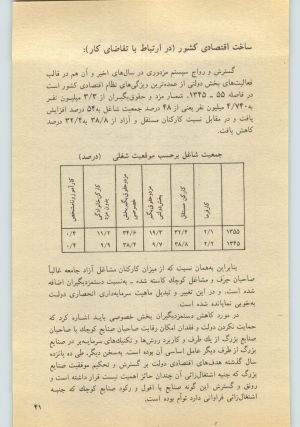 ساخت اقتصادی کشور (در ارتباط با تقاضای کار):
گسترش و رواج سیستم مزدوری در سال‌های اخیر و آن هم در قالب
فعالیت‌های بخش دولتی از عمده‌ترین ویژگی‌های نظام اقتصادی کشور است
در فاصله ۵۵ ـ ۱۳۴۵، شمار مزد و حقوق‌بگیران از ۳/۳ میلیون نفر
به ۴/۷۴۰ میلیون نفر یعنی از ۴۸ درصد جمعیت شاغل به ۵۴ درصد افزایش
یافت و در مقابل نسبت کارکنان مستقل و آزاد از ۳۸/۸ به ۳۲/۴ درصد
کاهش یافت.
جمعیت شاغل برحسب موقعیت شغلی (درصد)
کارفرما کارکن مستقل مزدوحقوق‌بگیر بخش‌دولتی مزدوحقوق‌بگیر بخش خصوصی کارکن‌خانوادگی بدون مزد کارآموزونامشخص
۱۳۵۵ ۲/۱ ۳۲/۴ ۱۹/۳ ۳۴/۶ ۱۱/۲ ۰/۴
۱۳۴۵ ۲/۲ ۳۸/۸ ۹/۷ ۳۸/۴ ۹/۹ ۰/۴
بنابراین به‌همان نسبت که از میزان کارکنان مشاغل آزاد جامعه غالباً
صاحبان حرف و مشاغل کوچک کاسته شده ـ به‌نسبت دستمزدبگیران اضافه
شده است. و در این تغییر و تبدیل ماهیت سرمایه‌داری انحصاری دولت
به‌خوبی نمایانده شده است.
در مورد کاهش دستمزدبگیران بخش خصوصی باید اشاره کرد که
حمایت نکردن دولت و فقدان امکان رقابت صاحبان صنایع کوچک با صاحبان
صنایع بزرگ از یک طرف و کاربرد روش‌ها و تکنیک‌های سرمایه‌بر در صنایع
بزرگ از طرف دیگر عامل اساسی آن بوده است. به‌سخن دیگر، طی ده پانزده
سال گذشته هدف‌های اقتصادی دولت بر گسترش و تحکیم موقعیت صنایع
بزرگ که جنبه اشتغال‌زائی آن چندان حائز اهمیت نیست قرار داشته است و
رونق و گسترش این گونه صنایع با افول و رکود صنایع کوچک که جنبه
اشتغال‌زائی فراوانی دارد توأم بوده است.
۴۱